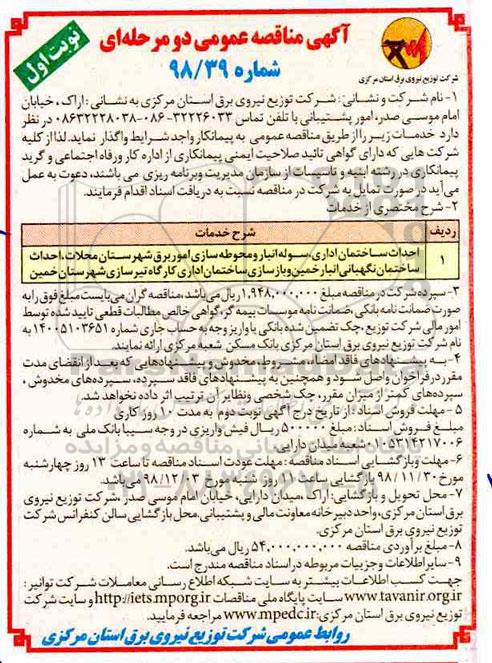 آگهی مناقصه عمومی دو مرحله‌ای
شماره ۹۸/۳۹
نوبت اول
شرکت توزیع نیروی برق استان مرکزی
۱- نام شرکت و نشانی: شرکت توزیع نیروی برق استان مرکزی به نشانی: اراک، خیابان
امام موسی صدر، امور پشتیبانی با تلفن تماس ۳۲۲۲۶۰۳۳-۰۸۶ - ۰۸۶۳۲۲۲۸۰۳۸ در نظر
دارد خدمات زیر را از طریق مناقصه عمومی به پیمانکار واجد شرایط واگذار نماید. لذا از کلیه
شرکت هایی که دارای گواهی تائید صلاحیت ایمنی پیمانکاری از اداره کار و رفاه اجتماعی و گرید
پیمانکاری در رشته ابنیه و تاسیسات از سازمان مدیریت و برنامه ریزی می باشند، دعوت به عمل
می آید در صورت تمایل به شرکت در مناقصه نسبت به دریافت اسناد اقدام فرمایند.
۲- شرح مختصری از خدمات
ردیف شرح خدمات
۱ احداث ساختمان اداری، سوله انبار و محوطه سازی امور برق شهرستان محلات، احداث
ساختمان نگهبانی انبار خمین و بازسازی ساختمان اداری کارگاه تیرسازی شهرستان خمین
۳- سپرده شرکت در مناقصه مبلغ ۱,۹۴۸,۰۰۰,۰۰۰ ریال می باشد، مناقصه گران می بایست مبلغ فوق را به
صورت ضمانت نامه بانکی، ضمانت نامه موسسات بیمه گر، گواهی خالص مطالبات قطعی تایید شده توسط
امور مالی شرکت توزیع، چک تضمین شده بانکی یا واریز وجه به حساب جاری شماره ۱۴۰۰۵۱۰۳۶۵۱ به
نام شرکت توزیع نیروی برق استان مرکزی بانک مسکن شعبه مرکزی ارائه نمایند.
۴- به پیشنهادهای فاقد امضاء، مشروط، مخدوش و پیشنهادهایی که بعد از انقضای مدت
مقرر در فراخوان واصل شود و همچنین به پیشنهادهای فاقد سپرده، سپرده‌های مخدوش،
سپرده‌های کمتر از میزان مقرر، چک شخصی و نظایر آن ترتیب اثر داده نخواهد شد.
۵- مهلت فروش اسناد: از تاریخ درج آگهی نوبت دوم به مدت ۱۰ روز کاری
مبلغ فروش اسناد: مبلغ ۵۰۰۰۰۰ ریال فیش واریزی در وجه سیبا بانک ملی به شماره
۰۱۰۵۳۱۴۲۱۷۰۰۶ شعبه میدان دارایی
۶- مهلت و بازگشایی اسناد مناقصه: مهلت عودت اسناد مناقصه تا ساعت ۱۳ روز چهارشنبه
مورخ ۹۸/۱۱/۳۰ بازگشایی ساعت ۱۳ روز شنبه مورخ ۹۸/۱۲/۰۳ می باشد.
۷- محل تحویل و بازگشایی: اراک، میدان دارایی، خیابان امام موسی صدر، شرکت توزیع نیروی
برق استان مرکزی، واحد دبیرخانه معاونت مالی و پشتیبانی. محل بازگشایی سالن کنفرانس شرکت
توزیع نیروی برق استان مرکزی.
۸- مبلغ برآوردی مناقصه ۵۴,۰۰۰,۰۰۰,۰۰۰ ریال می باشد.
۹- سایر اطلاعات و جزییات مربوطه در اسناد مناقصه مندرج است.
جهت کسب اطلاعات بیشتر به سایت شبکه اطلاع رسانی معاملات شرکت توانیر:
www.tavanir.org.ir سایت پایگاه ملی مناقصات http://iets.mporg.ir و سایت شرکت
توزیع نیروی برق استان مرکزی: www.mpedc.ir مراجعه فرمایید.
روابط عمومی شرکت توزیع نیروی برق استان مرکزی